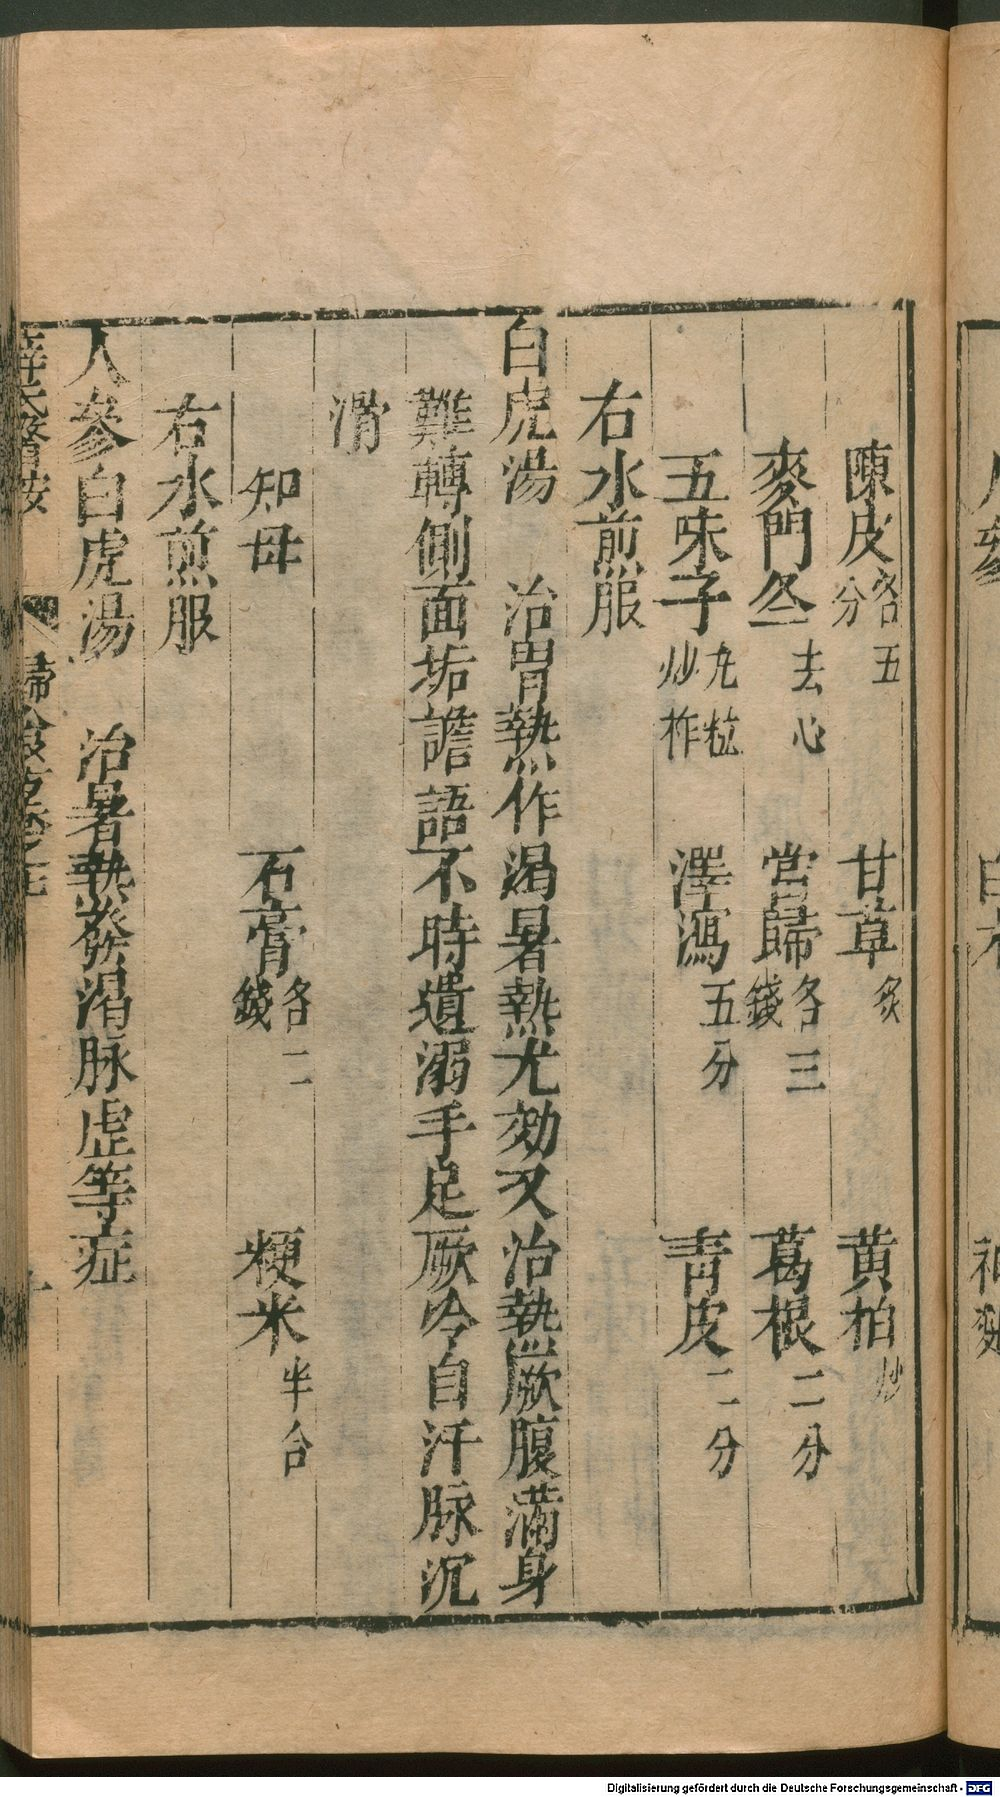 陳皮各五分　甘草炙　黃柏炒
麥門冬去心　當歸各三錢　葛根二分
五味子九粒炒杵　澤瀉五分　青皮二分
右水煎服
白虎湯　治胃熱作渴暑熱尤効又治熱厥腹滿身
難轉側面垢譫語不時遺溺手足厥冷自汗脉沉
滑
知母　石膏各二錢　粳米半合
右水煎服
人參白虎湯　治暑熱發渴脉虛等症
薛氏醫按
Digitalisierung gefördert durch die Deutsche Forschungsgemeinschaft - DFG